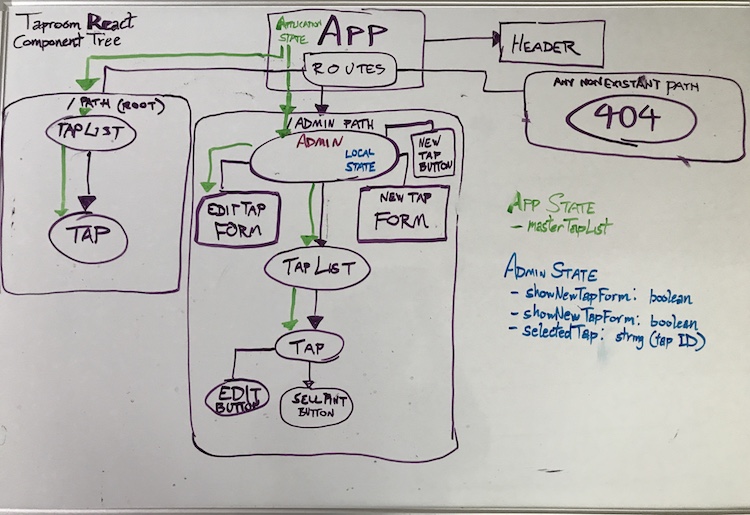 Taproom React
Component Tree
APPLICATION
STATE
APP
ROUTES
HEADER
/ PATH (ROOT)
TAPLIST
TAP
/ADMIN PATH
ADMIN
LOCAL
STATE
NEW
TAP
BUTTON
EDIT TAP
FORM
NEW TAP
FORM
TAP LIST
TAP
EDIT
BUTTON
SELL PINT
BUTTON
ANY NONEXISTANT PATH
404
APP STATE
- masterTapList
ADMIN STATE
- showNewTapForm: boolean
- showNewTapForm: boolean
- selectedTap: string (tap ID)